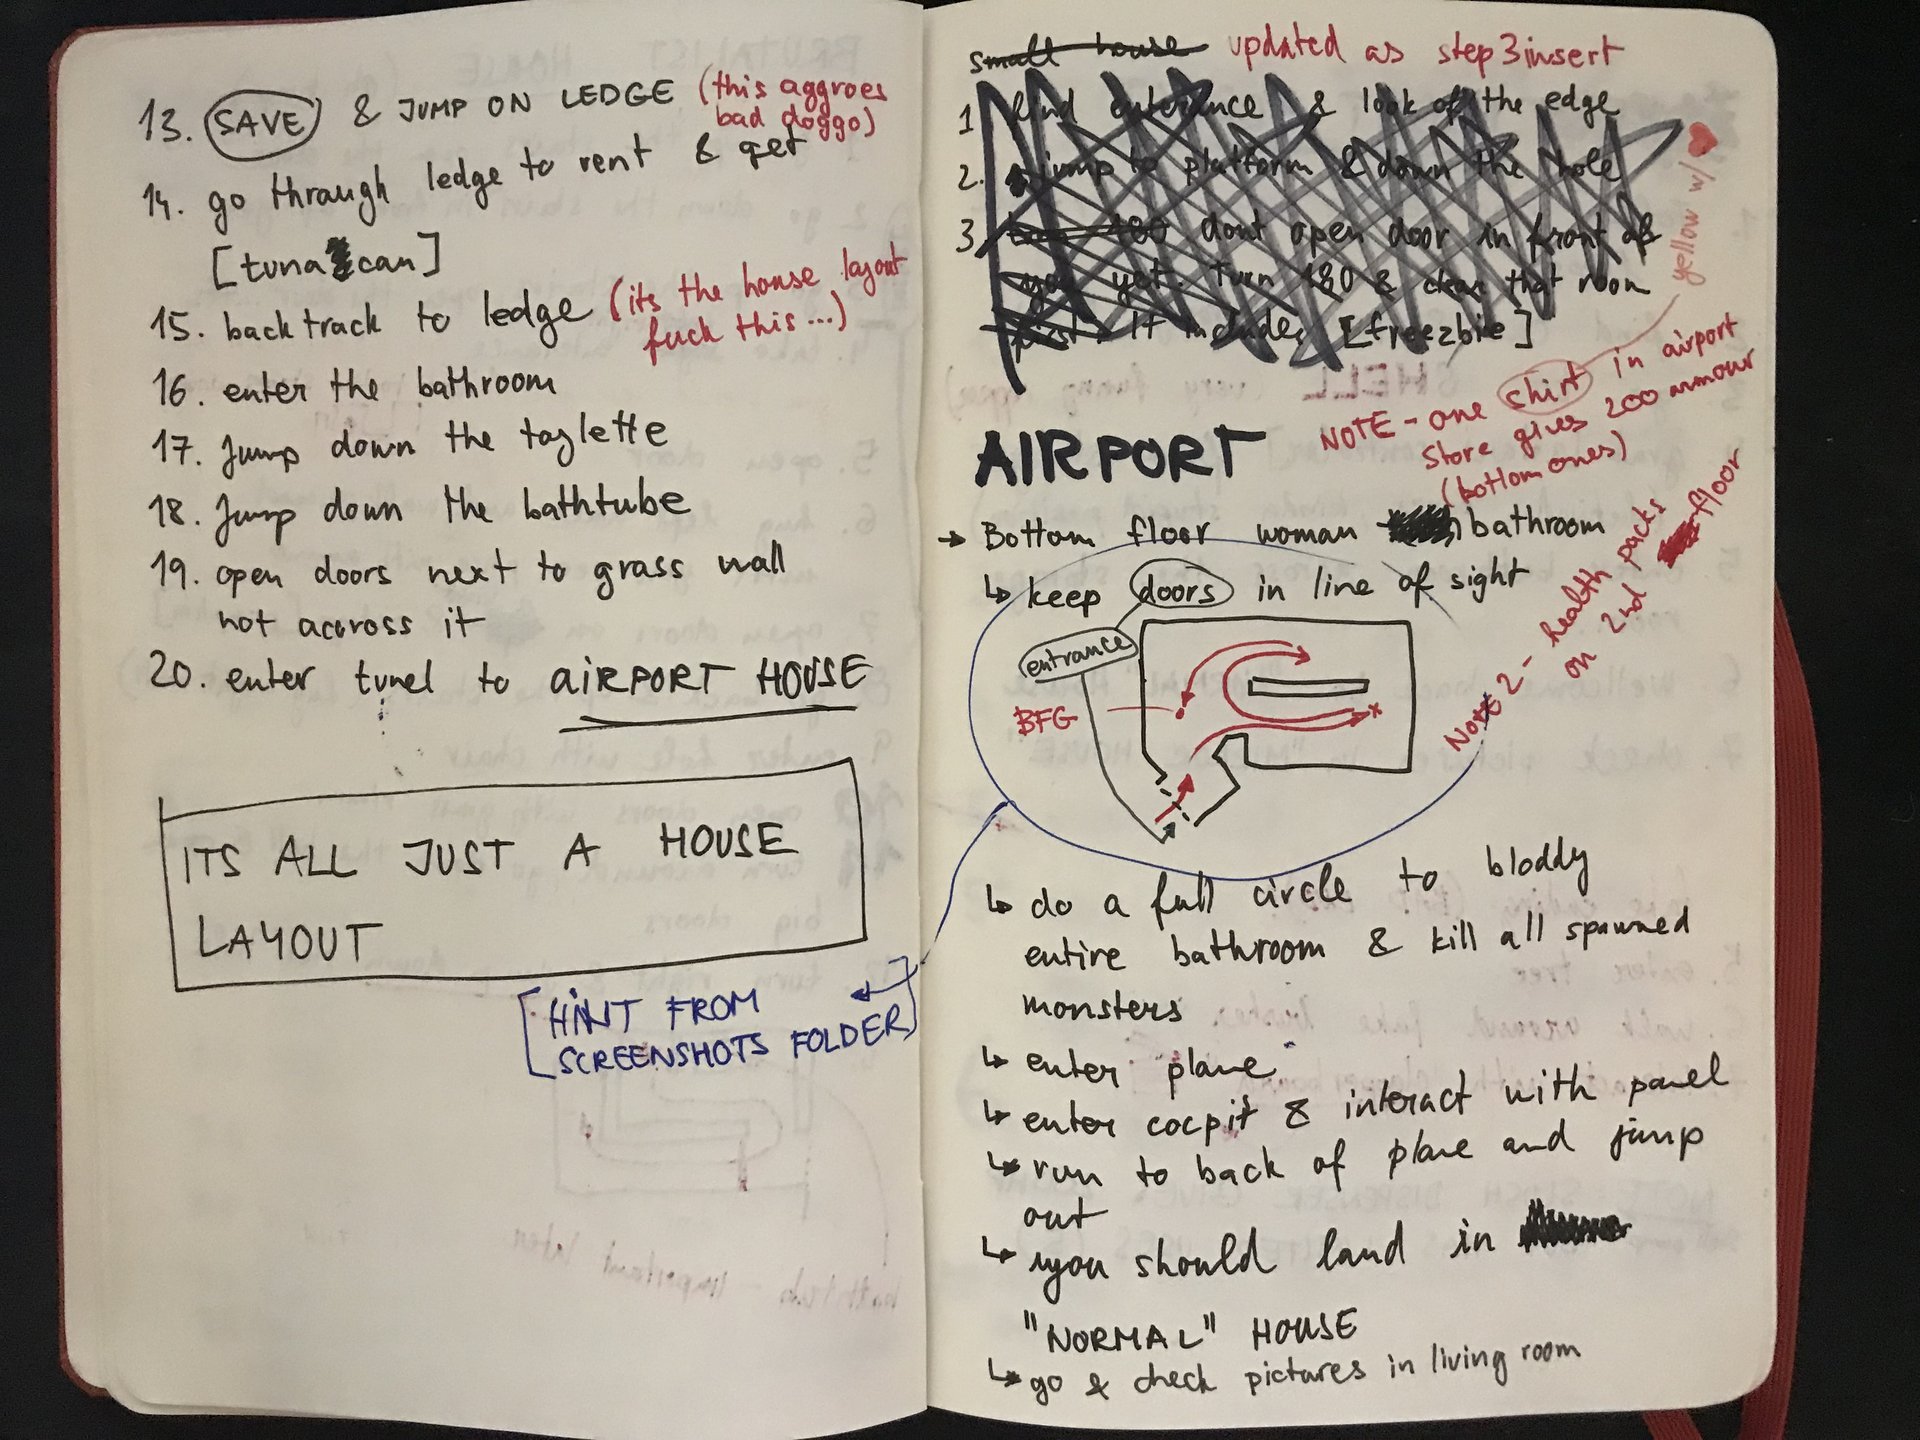 13. SAVE & JUMP ON LEDGE (this aggroes
bad doggo)
14. go through ledge to rent & get
[tuna can]
15. back track to ledge (its the house layout
fuck this...)
16. enter the bathroom
17. Jump down the toylette
18. Jump down the bathtube
19. open doors next to grass wall
not accross it
20. enter tunel to AIRPORT HOUSE
ITS ALL JUST A HOUSE
LAYOUT
[HINT FROM
SCREENSHOTS FOLDER]
small house updated as step3insert
1. find enterance & look of the edge
2. jump to platform & down the hole
3. turn 180 dont open door in front of
you yet. Turn 180 & clear that room
first. It includes [freezbie]
yellow w/ ♥
AIRPORT
NOTE - one shirt in airport
store gives 200 armour
(bottom ones)
→ Bottom floor woman bathroom
↳ keep doors in line of sight
entrance
BFG
NOTE 2 - health packs
on 2nd floor
↳ do a full circle to bloddy
entire bathroom & kill all spawned
monsters
↳ enter plane
↳ enter cocpit & interact with panel
↳ run to back of plane and jump
out
↳ you should land in
"NORMAL" HOUSE
↳ go & check pictures in living room